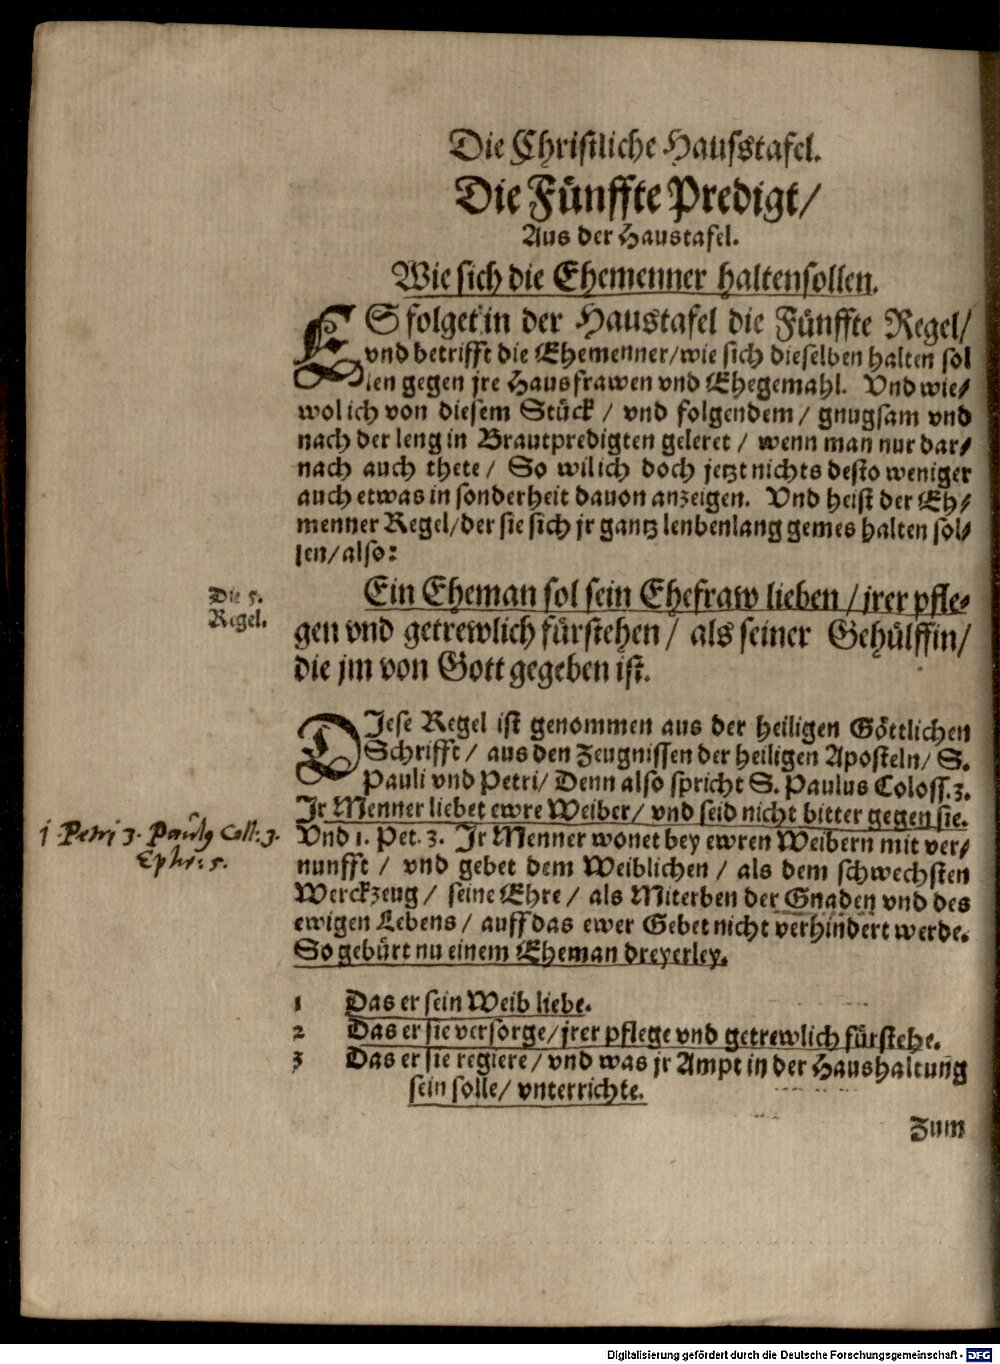 Die Christliche Hausstafel.
Die Fünffte Predigt/
Aus der Haustafel.
Wie sich die Ehemenner halten sollen.
ES folget in der Haustafel die Fünffte Regel/
vnd betrifft die Ehemenner/wie sich dieselben halten sol
len gegen jre Hausfrawen vnd Ehegemahl. Vnd wie-
wol ich von diesem Stück / vnd folgendem / gnugsam vnd
nach der leng in Brautpredigten geleret / wenn man nur dar-
nach auch thete / So wil ich doch jetzt nichts desto weniger
auch etwas in sonderheit dauon anzeigen. Vnd heist der Eh-
menner Regel/der sie sich jr gantz lenbenlang gemes halten sol-
len/also:
Die 5.
Regel.
Ein Eheman sol sein Ehefraw lieben / jrer pfle-
gen vnd getrewlich fürstehen / als seiner Gehülffin/
die jm von Gott gegeben ist.
DJese Regel ist genommen aus der heiligen Göttlichen
Schrifft / aus den Zeugnissen der heiligen Aposteln/ S.
Pauli vnd Petri/ Denn also spricht S. Paulus Coloss. 3.
Jr Menner liebet ewre Weiber/ vnd seid nicht bitter gegen sie.
j Petrj 3. Paulg Coll: 3.
Ephe: 5.
Vnd 1. Pet. 3. Jr Menner wonet bey ewren Weibern mit ver-
nunfft / vnd gebet dem Weiblichen / als dem schwechsten
Werckzeug / seine Ehre / als Miterben der Gnaden vnd des
ewigen Lebens / auff das ewer Gebet nicht verhindert werde.
So gebürt nu einem Eheman dreyerley.
1 Das er sein Weib liebe.
2 Das er sie versorge/jrer pflege vnd getrewlich fürstehe.
3 Das er sie regiere / vnd was jr Ampt in der Haushaltung
sein solle/ vnterrichte.
Zum
Digitalisierung gefördert durch die Deutsche Forschungsgemeinschaft - DFG